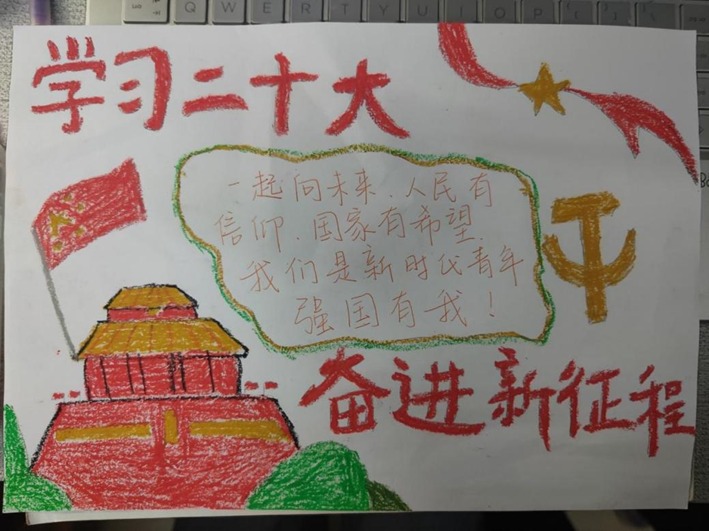 学习二十大
一起向未来、人民有
信仰、国家有希望,
我们是新时代青年
强国有我!
奋进新征程